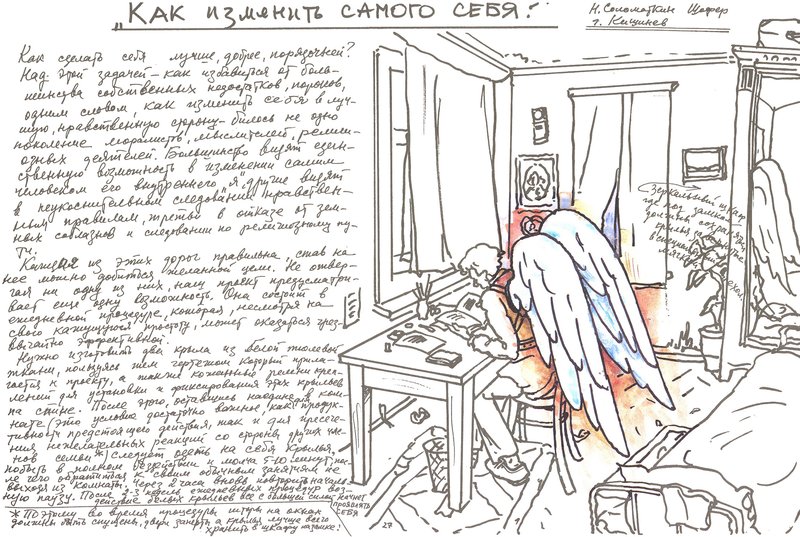 „Как изменить самого себя?"
Н. Соломаткин Шофер
г. Кишинев
Как сделать себя лучше, добрее, порядочней?
Над этой задачей – как избавиться от боль-
шинства собственных недостатков, пороков,
одним словом, как изменить себя в луч-
шую, нравственную сторону – билось не одно
поколение моралистов, мыслителей, религи-
озных деятелей. Большинство видят един-
ственную возможность в изменении самим
человеком его внутреннего „я", другие видят
в неукоснительном следовании нравствен-
ным правилам, третьи в отказе от зем-
ных соблазнов и следовании по религиозному пу-
ти.
Каждая из этих дорог правильна, став на
нее можно добиться желанной цели. Не отвер-
гая ни одну из них, наш проект предусматри-
вает еще одну возможность. Она состоит в
ежедневной процедуре, которая, несмотря на
свою кажущуюся простоту, может оказаться чрез-
вычайно эффективной.
Нужно изготовить два крыла из белой тюлевой
ткани, пользуясь тем чертежом который прила-
гается к проекту, а также кожаные ремни креп-
лений для установки и фиксирования этих крыльев
на спине. После этого, оставшись наедине в ком-
нате (это условие достаточно важное, как продук-
тивности предстоящего действия, так и для пресече-
ния нежелательных реакций со стороны других чле-
нов семьи*) следует одеть на себя крылья,
побыть в полном бездействии и молча 5-10 минут, пос-
ле чего обратиться к своим обычным занятиям не
выходя из комнаты. Через 2 часа вновь повторить началь-
ную паузу. После 2-3 недель ежедневных процедур воз-
действие белых крыльев все с большей силой начнет
проявлять
себя
* Поэтому во время процедуры шторы на окнах
должны быть спущены, двери заперты а крылья лучше всего
хранить в шкафу на замке!
Зеркальный шкаф
где под замком
должны сохранять
крылья
27